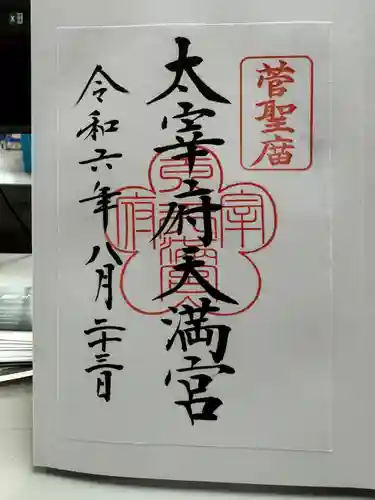 菅聖庿
太宰府天満宮
令和六年八月二十三日